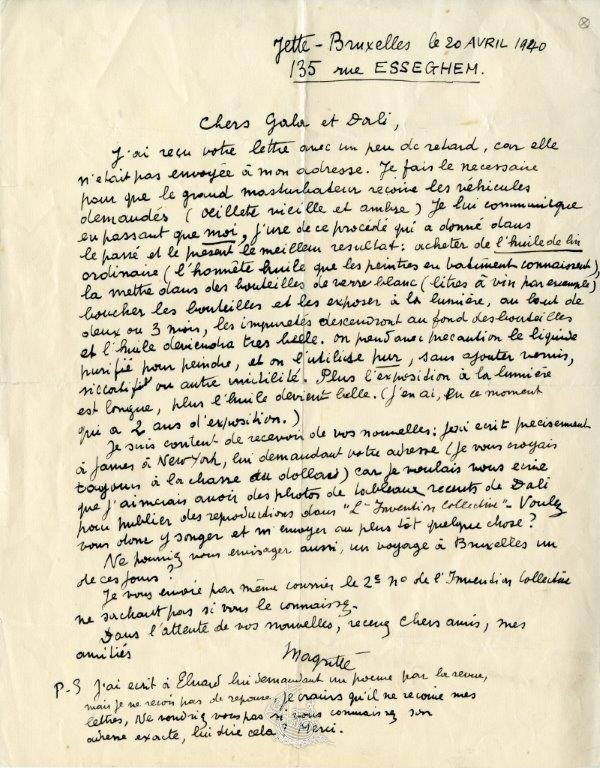 Jette - Bruxelles le 20 AVRIL 1940
135 rue ESSEGHEM.
Chers Gala et Dali,
J'ai reçu votre lettre avec un peu de retard, car elle
n'etait pas envoyée à mon adresse. Je fais le necessaire
pour que le grand masturbateur reçoive les véhicules
demandés (œillette vieille et ambre) Je lui communique
en passant que moi, j'use de ce procédé qui a donné dans
le passé et le présent le meilleur resultat: acheter de l'huile de lin
ordinaire (l'honnête huile que les peintres en batiment connaissent),
la mettre dans des bouteilles de verre blanc (litres à vin par exemple)
boucher les bouteilles et les exposer à la lumière, au bout de
deux ou 3 mois, les impuretés descendront au fond des bouteilles
et l'huile deviendra tres belle. on prend avec precaution le liquide
purifié pour peindre, et on l'utilise pur, sans ajouter vernis,
siccatif ou autre inutilité. Plus l'exposition à la lumière
est longue, plus l'huile devient belle. (j'en ai, en ce moment
qui a 2 ans d'exposition.)
Je suis content de recevoir de vos nouvelles: j'ai ecrit precisement
à James à New York, lui demandant votre adresse (je vous croyais
toujours à la chasse au dollars) car je voulais vous ecrire
que j'aimerais avoir des photos de tableaux recents de Dali
pour publier des reproductions dans "L'Invention Collective" - Voulez
vous donc y songer et m'envoyer au plus tôt quelque chose?
Ne pourriez vous envisager aussi, un voyage à Bruxelles un
de ces jours?
Je vous envoie par même courrier le 2e no de l'Invention Collective
ne sachant pas si vous le connaissez.
Dans l'attente de vos nouvelles, recevez chers amis, mes
amitiés
Magritte
P.S J'ai ecrit à Eluard lui demandant un poeme par la revue,
mais je ne reçois pas de reponse, je crains qu'il ne recoive mes
lettres, Ne voudriez vous pas si vous connaissez son
adresse exacte, lui dire cela? Merci.